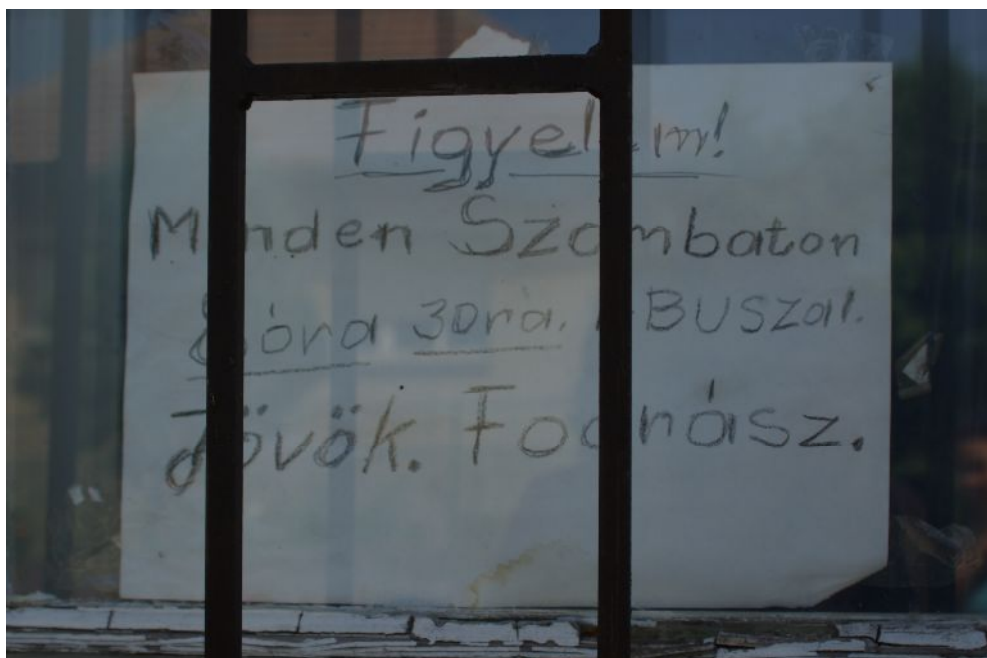 Figyelem!
Minden Szombaton
8óra 30ra. BUSZal.
Jövök. Fodrász.